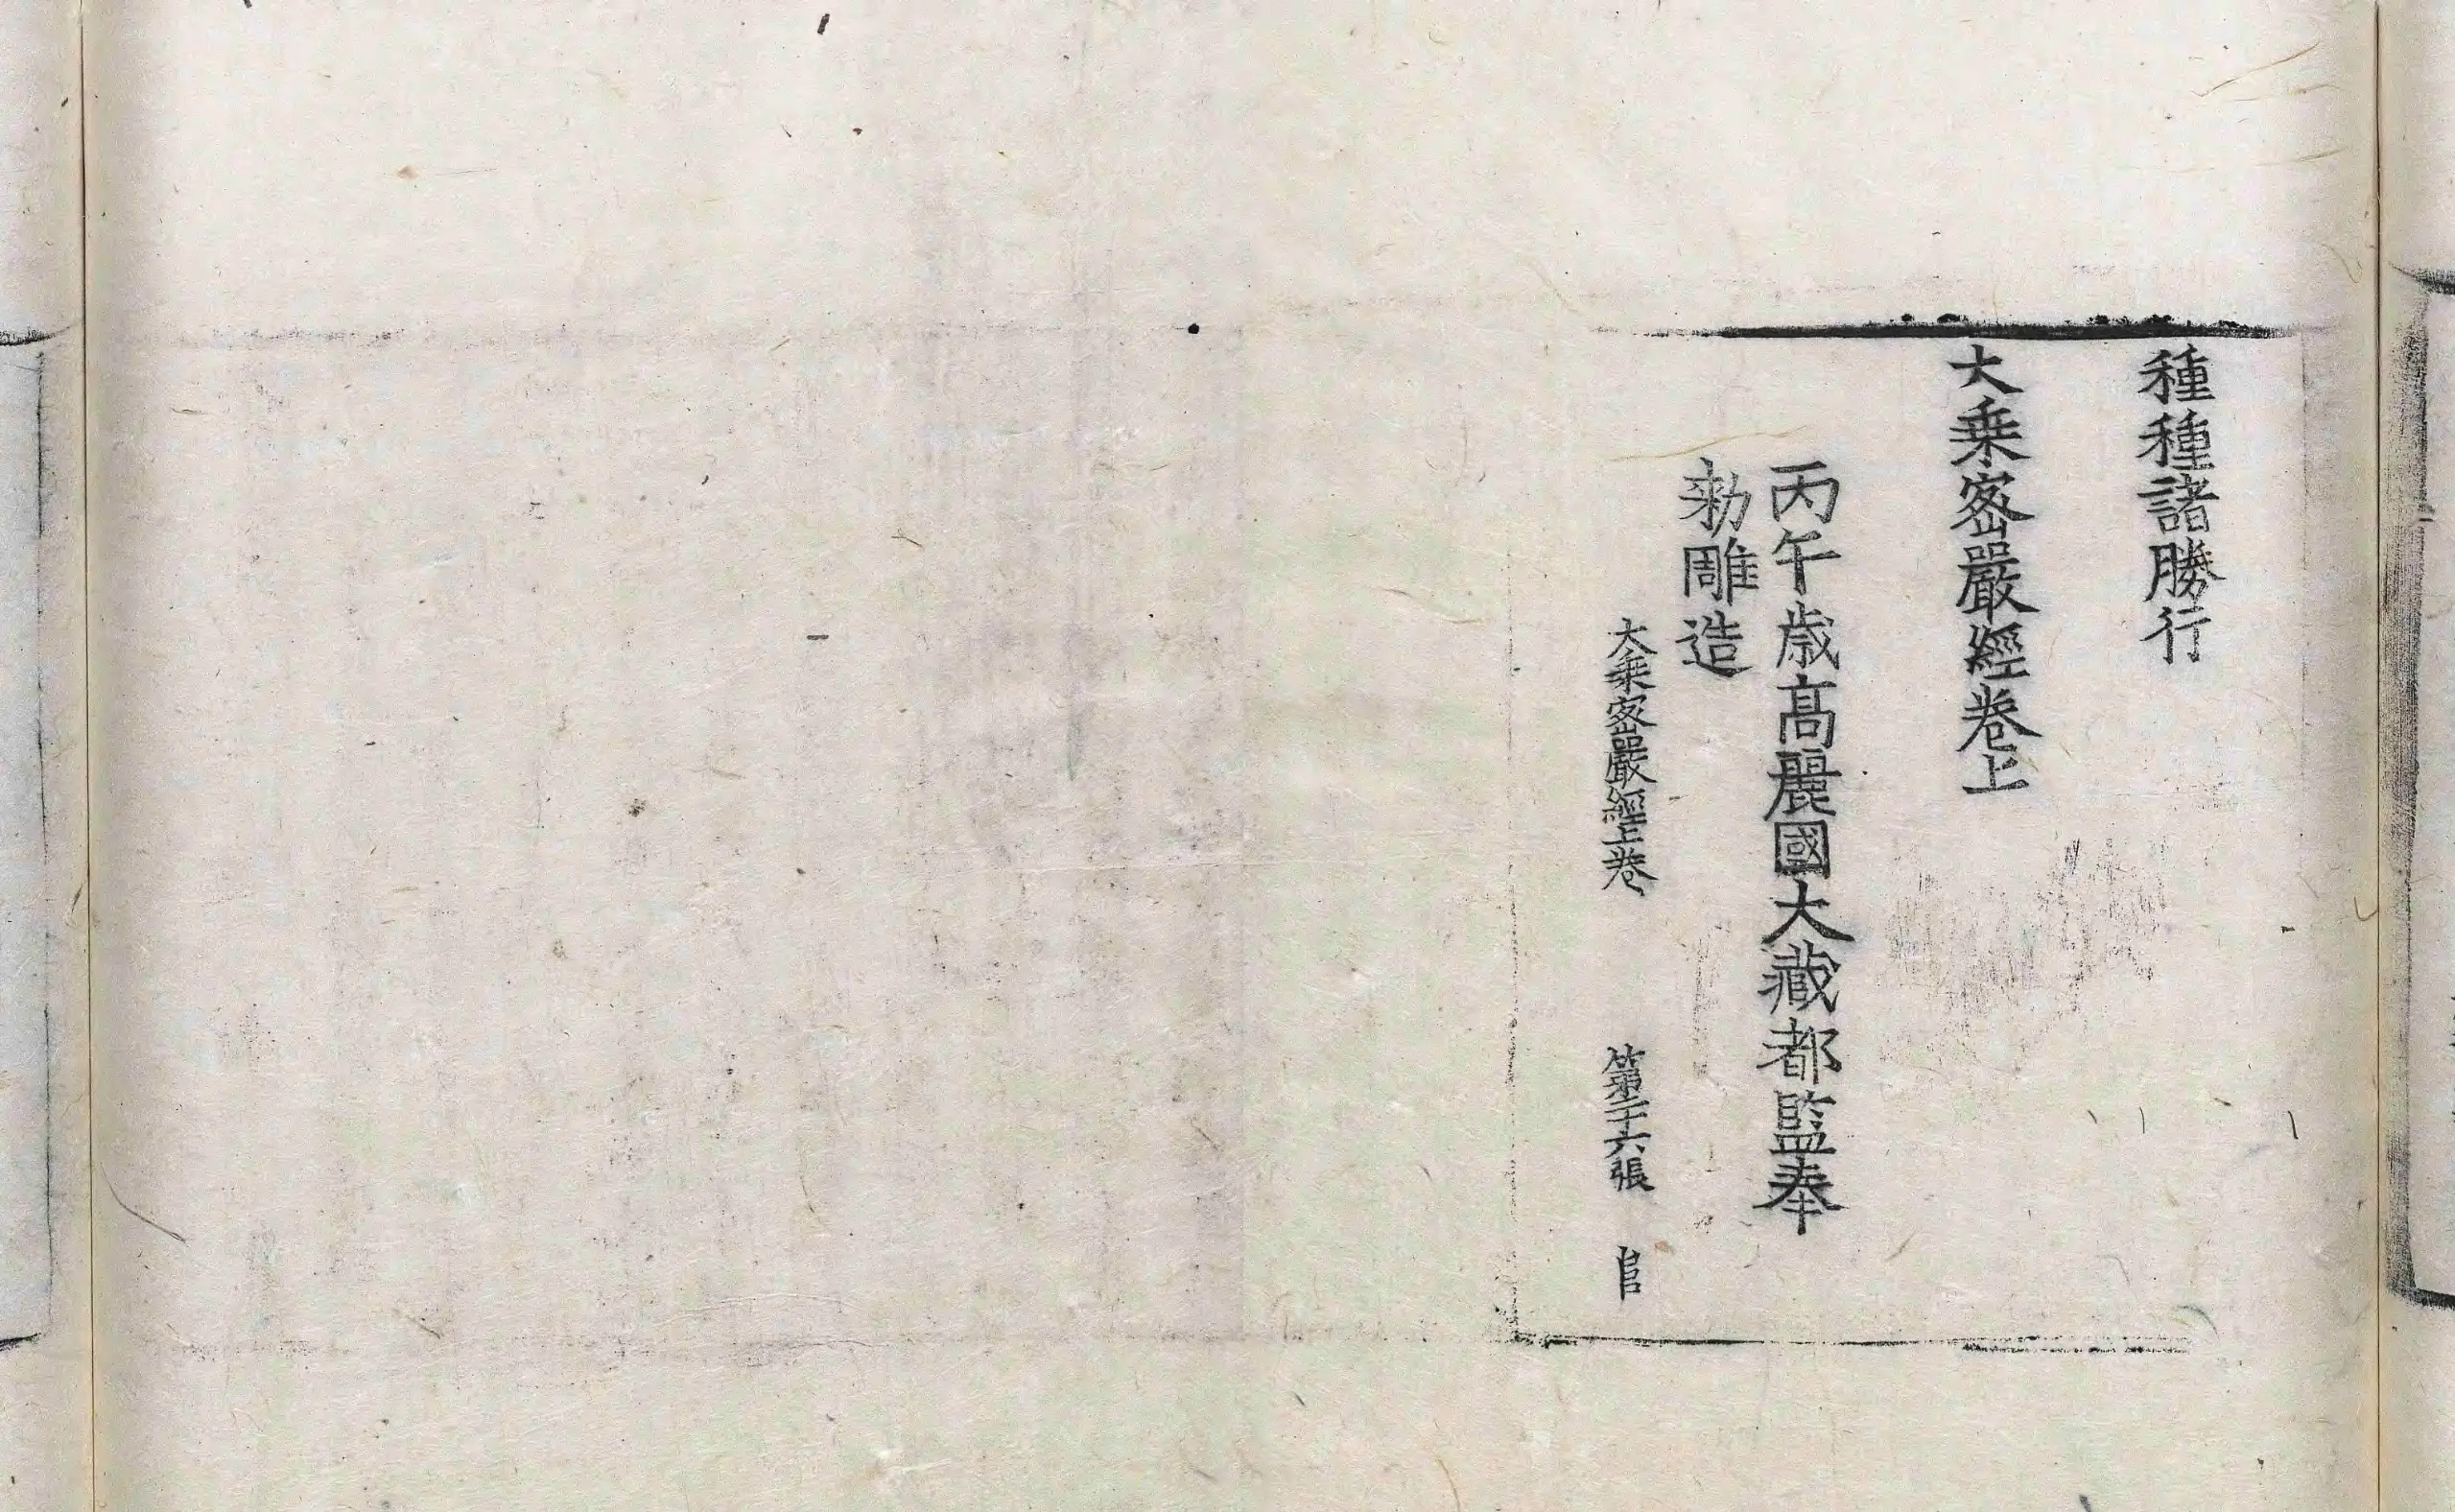 種種諸勝行
大乗密嚴經卷上
丙午歳高麗國大藏都監奉
勑雕造
大乗密嚴經上卷 第二十六張 阜